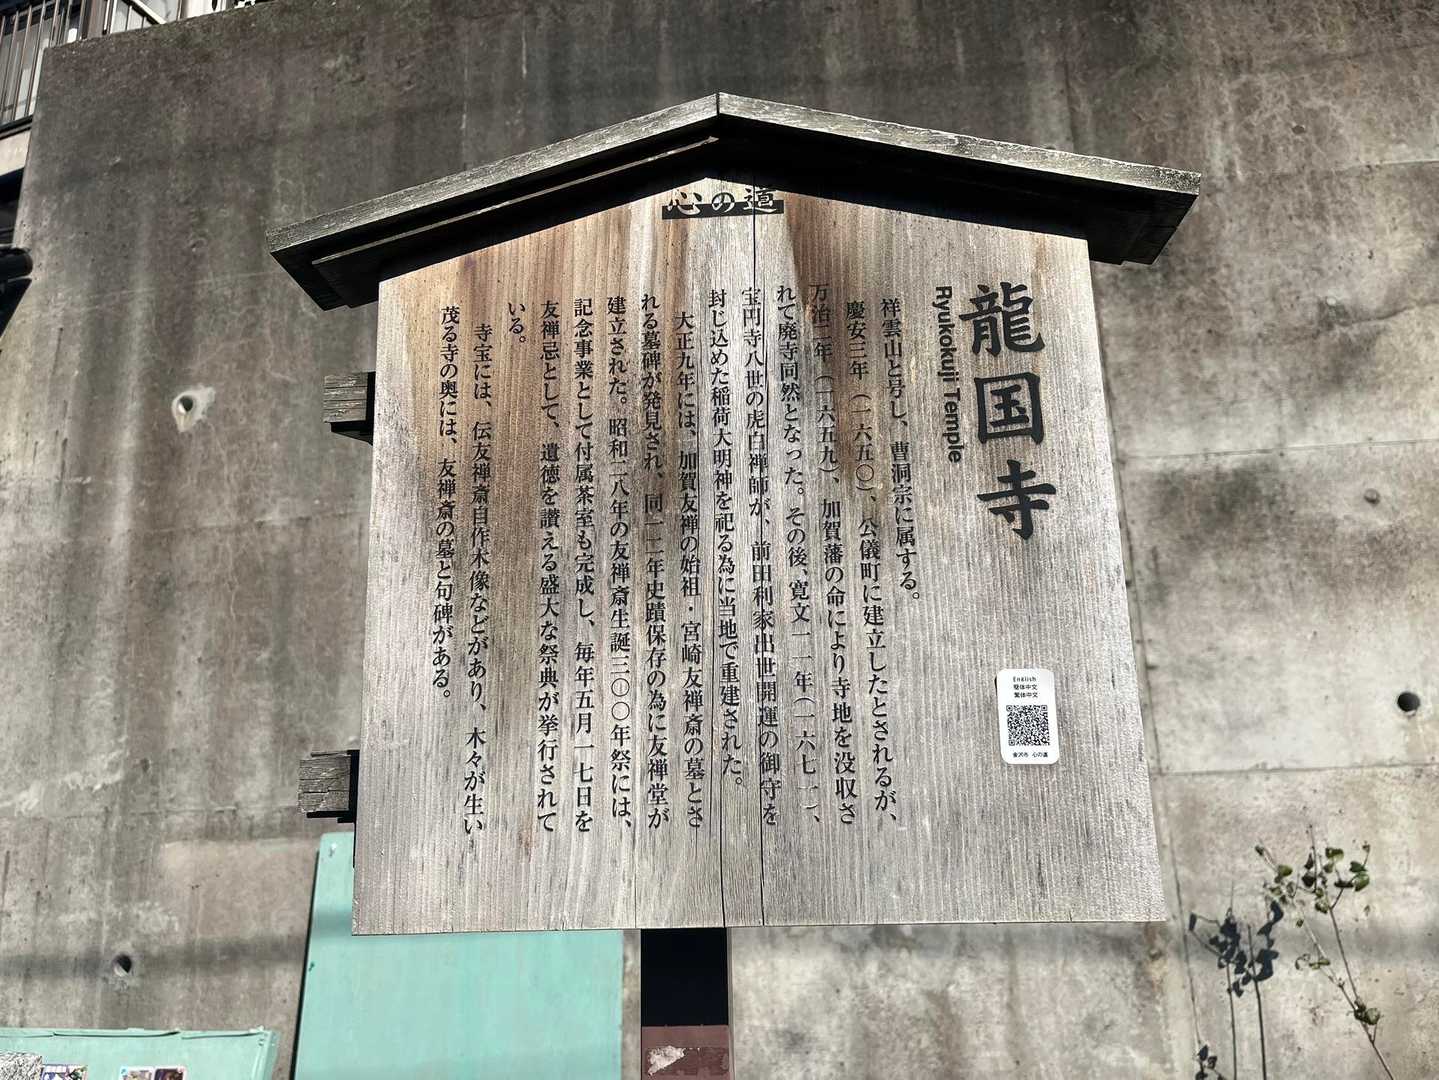 心の道
龍国寺
Ryukokuji Temple
祥雲山と号し、曹洞宗に属する。
慶安三年（一六五〇）、公儀町に建立したとされるが、
万治二年（一六五九）、加賀藩の命により寺地を没収さ
れて廃寺同然となった。その後、寛文一一年（一六七一）、
宝円寺八世の虎白禅師が、前田利家出世開運の御守を
封じ込めた稲荷大明神を祀る為に当地で重建された。
大正九年には、加賀友禅の始祖・宮崎友禅斎の墓とさ
れる墓碑が発見され、同一二年史蹟保存の為に友禅堂が
建立された。昭和二八年の友禅斎生誕三〇〇年祭には、
記念事業として付属茶室も完成し、毎年五月一七日を
友禅忌として、遺徳を讃える盛大な祭典が挙行されて
いる。
寺宝には、伝友禅斎自作木像などがあり、木々が生い
茂る寺の奥には、友禅斎の墓と句碑がある。
English
簡体中文
繁体中文
金沢市 心の道